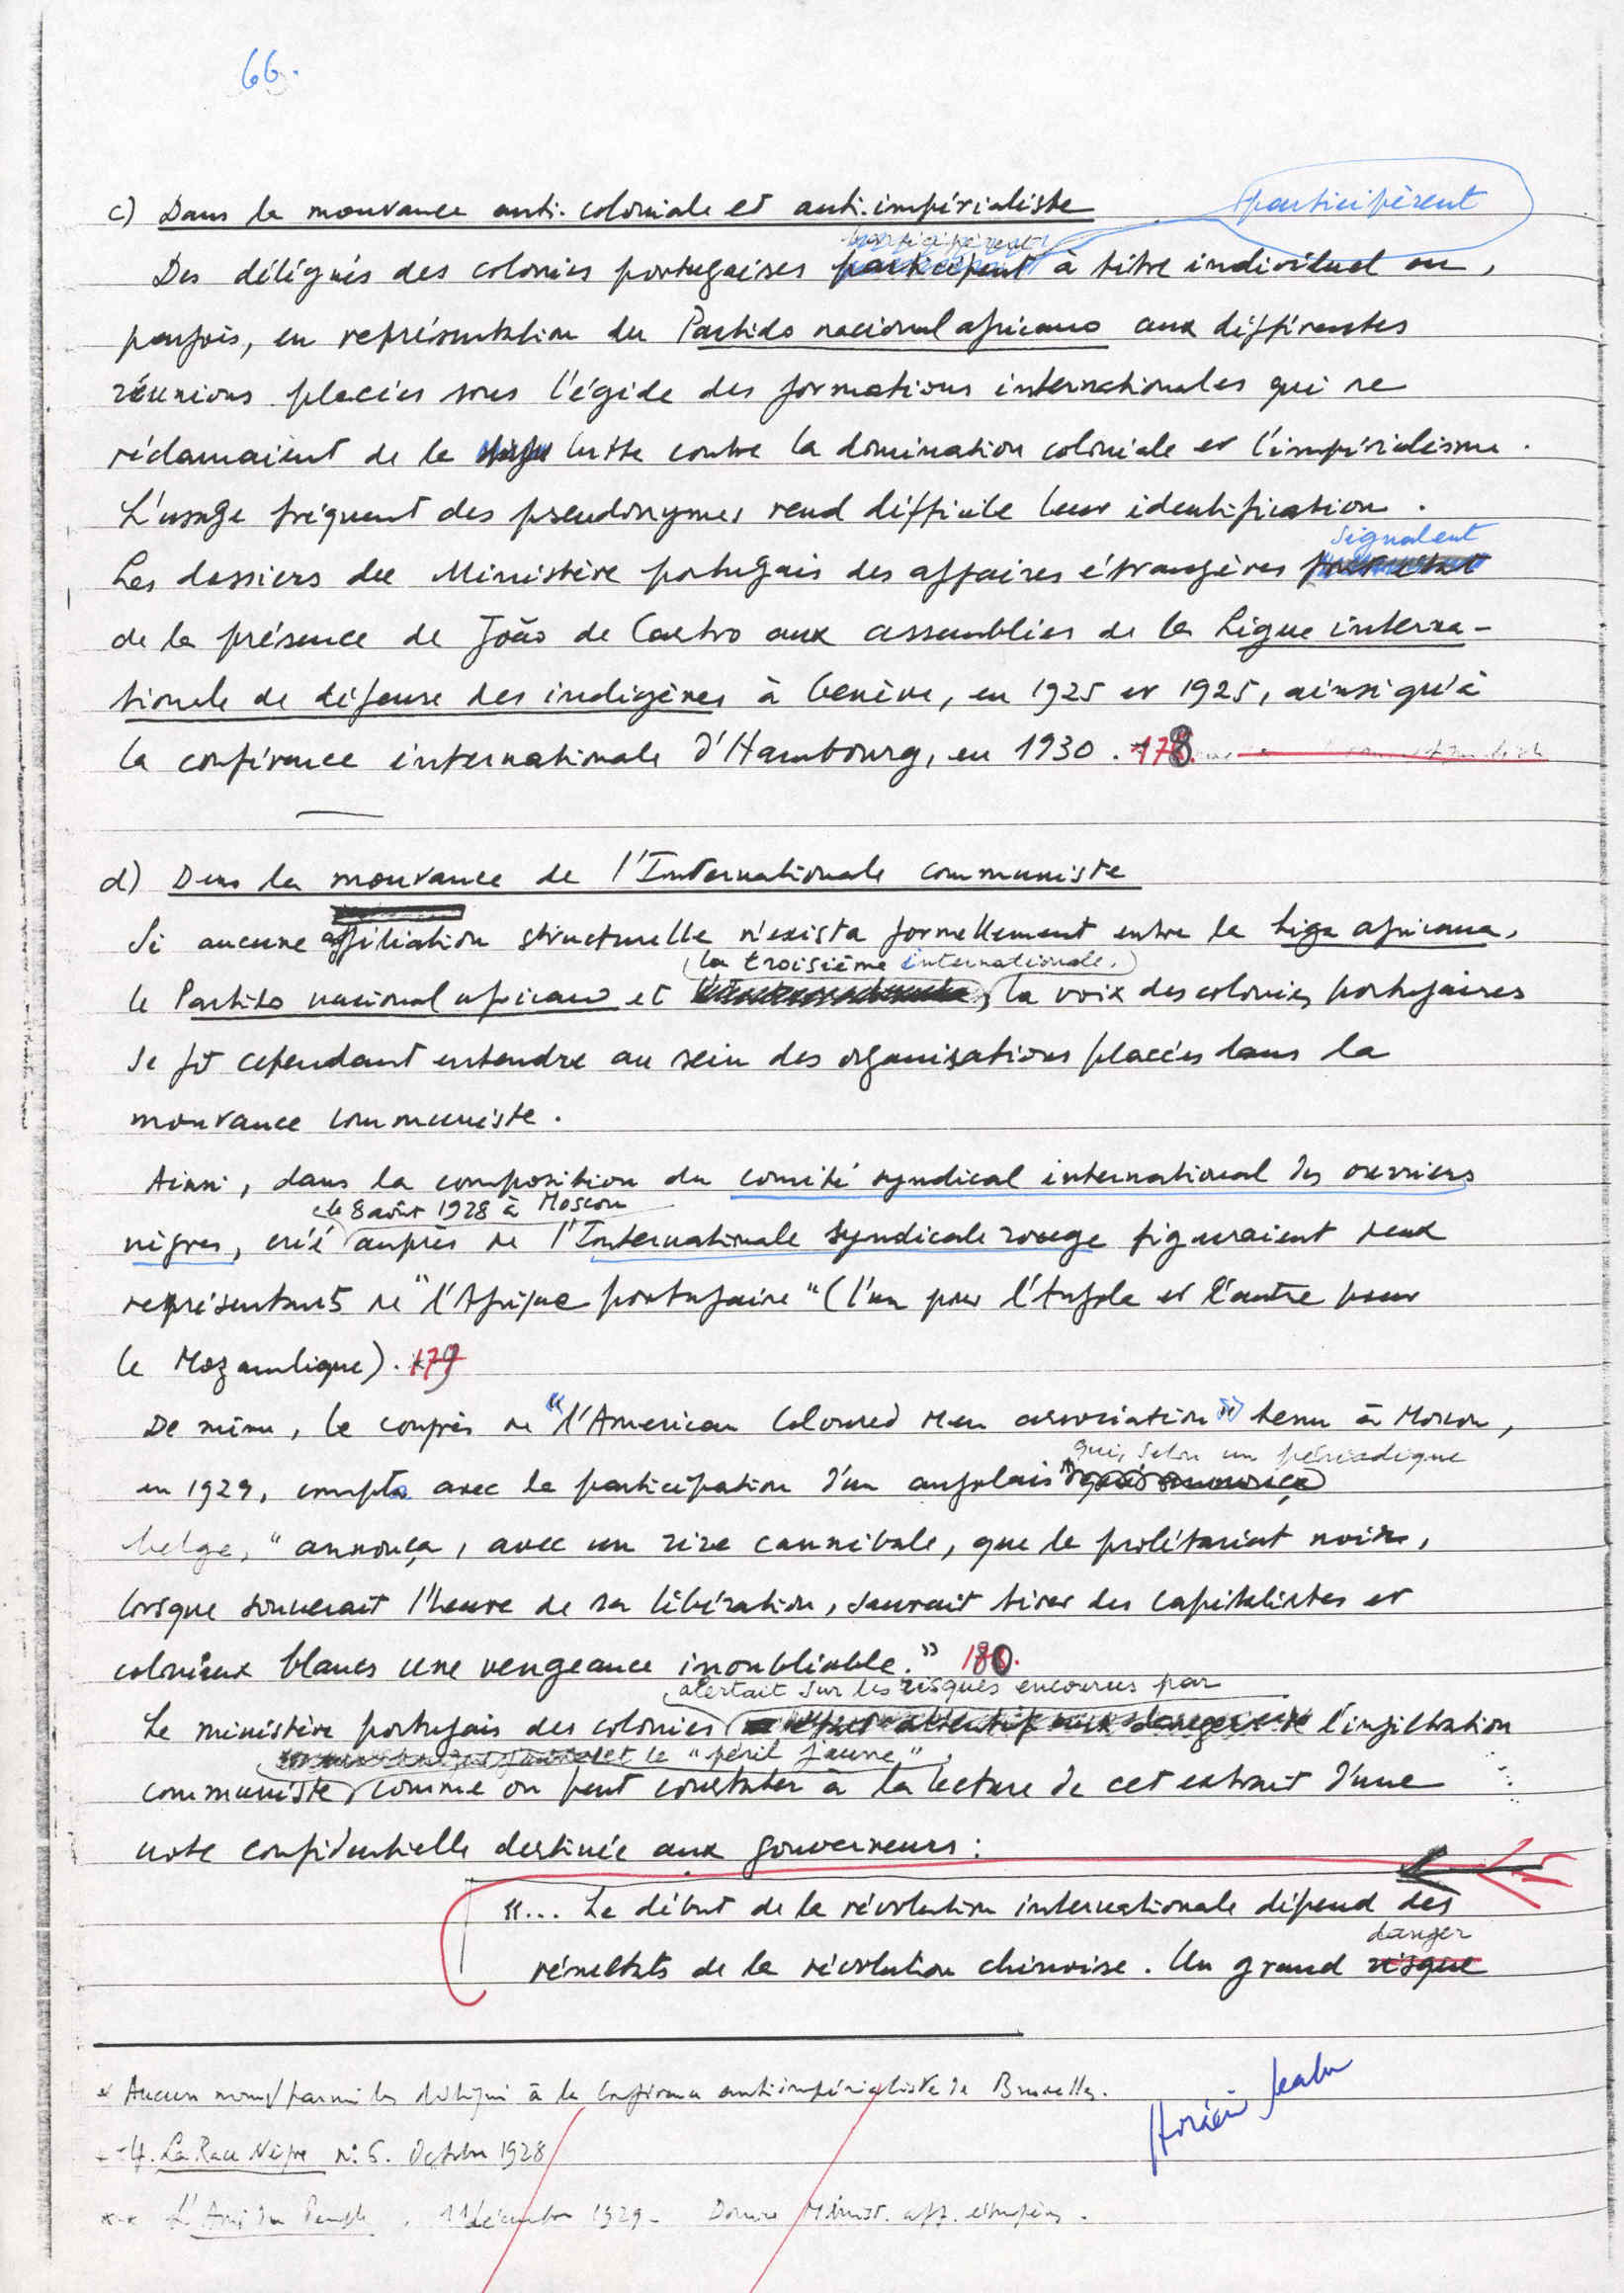 66.
c) Dans la mouvance anti-coloniale et anti-impérialiste participèrent
Des délégués des colonies portugaises participent à titre individuel ou,
parfois, en représentation du Partido nacional africano aux différentes
réunions placées sous l'égide des formations internationales qui se
réclamaient de la lutte contre la domination coloniale et l'impérialisme.
L'usage fréquent des pseudonymes rend difficile leur identification.
signalent
Les dossiers du Ministère portugais des affaires étrangères
de la présence de João de Castro aux assemblées de la Ligue interna-
tionale de défense des indigènes à Genève, en 1925 et 1925, ainsi qu'à
la conférence internationale d'Hambourg, en 1930. 178
d) Dans la mouvance de l'Internationale communiste
Si aucune affiliation structurelle n'exista formellement entre la Liga africana,
la troisième internationale,
le Partido nacional africano et la voix des colonies portugaises
se fit cependant entendre au sein des organisations placées dans la
mouvance communiste.
Ainsi, dans la composition du comité syndical international des ouvriers
le 8 août 1928 à Moscou
nègres, créé auprès de l'Internationale syndicale rouge figuraient deux
représentants de "l'Afrique portugaise" (l'un pour l'Angola et l'autre pour
le Mozambique). 179
De même, le congrès de "l'American Coloured Men association" tenu à Moscou,
qui, selon un périodique
en 1929, compta avec la participation d'un angolais qui annonça
belge, "annonça, avec un rire cannibale, que le prolétariat noir,
lorsque sonnerait l'heure de sa libération, saurait tirer des capitalistes et
coloniaux blancs une vengeance inoubliable." 180.
alertait sur les risques encourus par
Le ministère portugais des colonies l'infiltration
et le "péril jaune",
communiste comme on peut constater à la lecture de cet extrait d'une
note confidentielle destinée aux gouverneurs:
"... Le début de la révolution internationale dépend des
danger
résultats de la révolution chinoise. Un grand risque
* Aucun nom parmi les délégués à la Conférence antiimpérialiste de Bruxelles.
La Race Nègre n: 5. Octobre 1928
** L'Ami du Peuple, 11 décembre 1929 - Minist. aff. étrangères.